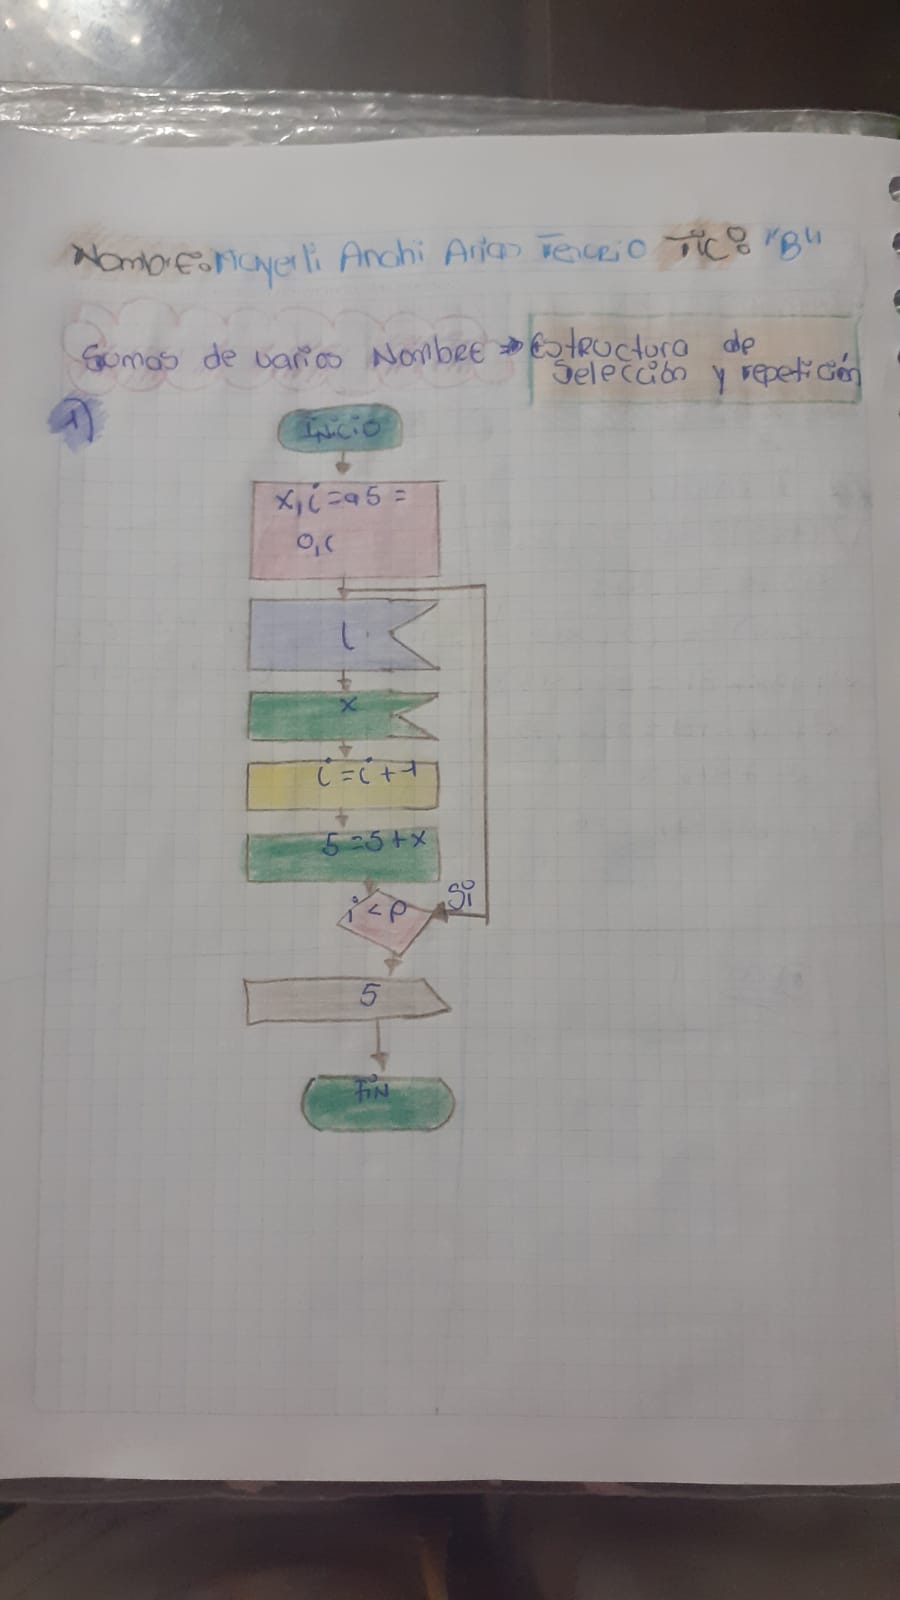 Nombre: Mayerli Anchi Arias Tercero TIC: "B"
Sumas de varios Nombre → Estructura de
Selección y repetición
1)
INICIO
x, i = a 5 =
0, (
l.
x
i = i + 1
5 = 5 + x
i < p
Si
5
FIN